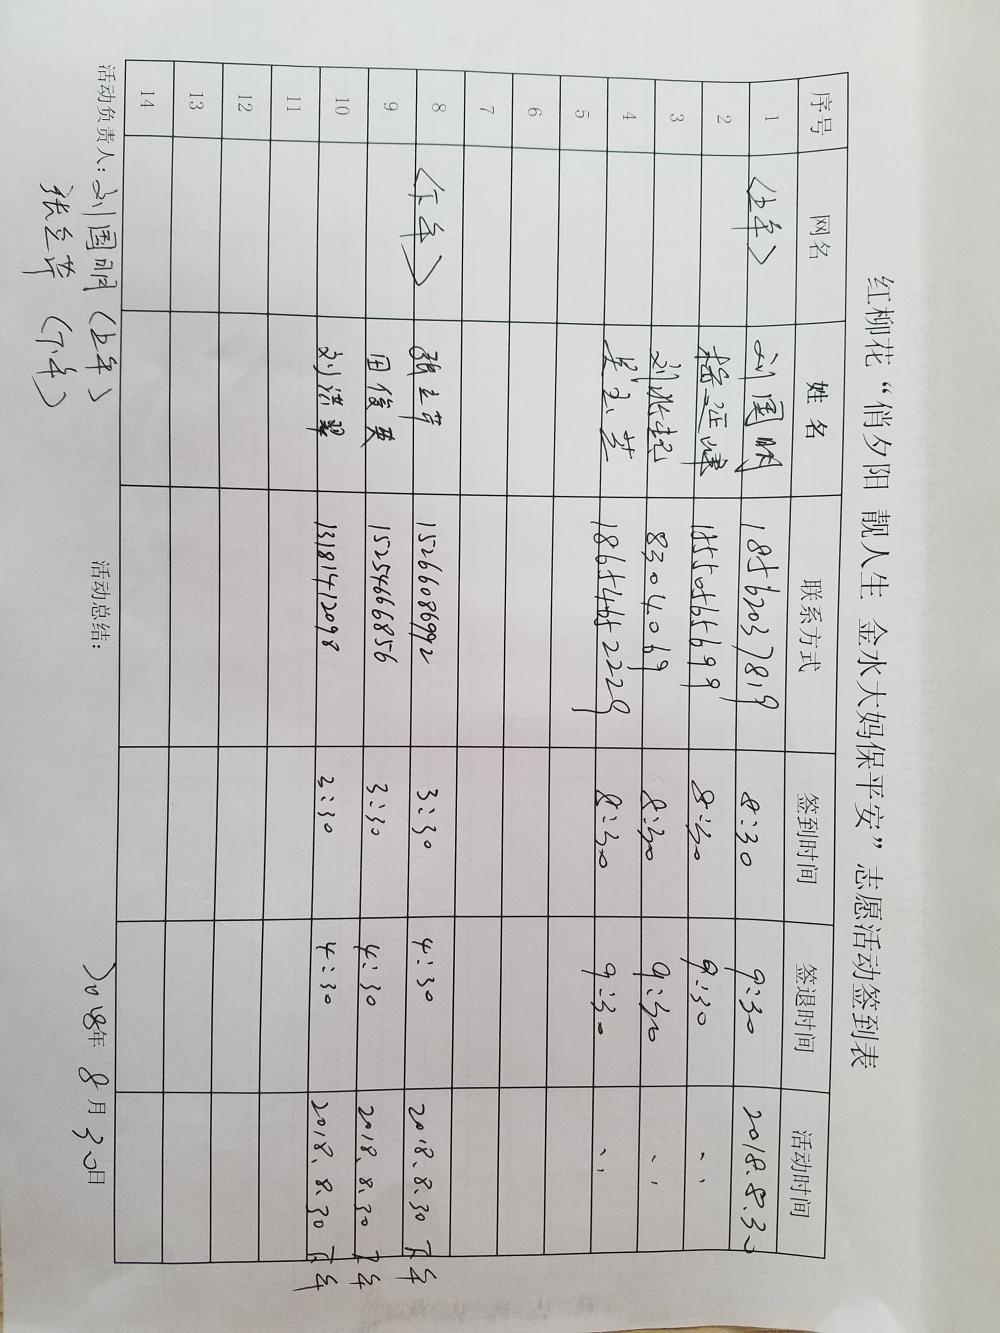 红柳花“俏夕阳 靓人生 金水大妈保平安”志愿活动签到表
序号 网名 姓名 联系方式 签到时间 签退时间 活动时间
1 〈上午〉 刘国明 18562037819 8:30 9:30 2018.8.30
2 15505565699 8:30 9:30 、、
3 8304069 8:30 9:30 、、
4 18654652229 8:30 9:30 、、
5
6
7
8 〈下午〉 15266086992 3:30 4:30 2018.8.30下午
9 田俊英 15254666856 3:30 4:30 2018.8.30下午
10 13181412098 3:30 4:30 2018.8.30下午
11
12
13
14
活动负责人:刘国明(上午) 活动总结: 2018年8月30日
(下午)